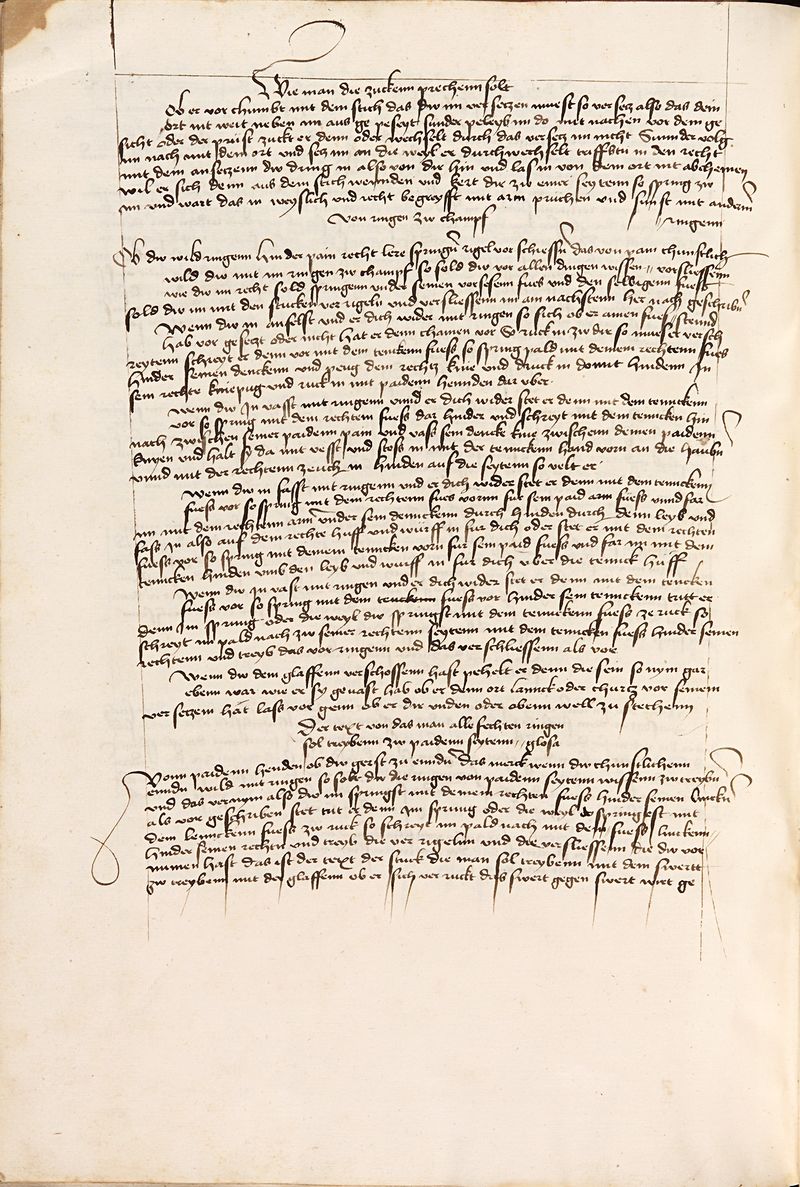 Wie man die zuckenn prechenn solt
Ob er vor chumbt mit dem stich das dw im ver setzen muest so ver setz also das dein
ort nit weit neben im aus ge peseyt sunder peleyb im do mit nachen vor dem ge
sicht oder der prust zuckt er denn oder wechselt durch das versetz im nicht Sunder volg
im nach mit dem ort und setz im an die weyl er durchwechselt triffstu in den recht
mit dem ansetzenn dw dring in also von dir hin und las in von dem ort nit abchemen
wil er sich denn aus dem stich wennden und kert dir zw einer seytenn so spring zw
im und wart das in weyslich und recht begreyfft mit arm pruchen und sunst mit anderm
Von ringen zw champf ringenn
Ob dw wild ringenn hinder pain recht lere springen rigel vor schiessen das von pam chunstlich
wild dw mit im ringen zw champf so sold dw vor allen dingen wissen vorsliessenn
wie dw im recht sold springenn under seinen vorsesenn fues und den selbigenn fuess
sold dw im mit den stucken ver rigeln und versliessenn im am nachstenn her nach geschriben
Wenn dw in anfelst und er dich wider mit ringen so sich ob er ainen fuess steund
hab vor gesetzt oder nicht hat er denn chainen vor So ruck in zw dir so mues er versch
reytenn schreyt er denn vor mit dem tenckenn fuess so spring pald mit deinem rechtenn fues
hinder seinen denckenn und peug dem rechtz knie und druck in do mit hindenn in
sein rechte kniepug und ruck in mit paidenn hennden dar uber
Wenn dw In vasst mit ringenn unnd er dich wider stet er denn mit dem tenckenn
vor so spring mit dem rechtenn fuess dar hinder und schreyt mit dem tenncken hin
nach zwischen seiner paidenn pain und vass sein dencke knie zwischenn deinen paidenn
knyen und halt sy da mit vesst und stoss in mit der tennckenn hand vorn an die haubn
unnd mit der rechtenn zeuch in hinden auf die seytenn so velt er
Wenn dw in fasst mit ringenn und er dich wider stet er denn mit dem tennckenn
fuess vor so spring mit dem rechtenn fues vornn fur sein paid arm fuess unnd far
im mit dem rechtenn arm under sein dennckenn durch hinden durch denn leyb und
fass in also auf dein rechte huff und wurff in fur dich oder stet er mit dem rechten
fuess vor so spring mit deinem tenncken vorn fur sein paid fuess und far im mit dem
tenncken hinden umb den leyb und wurff in fur dich uber die tennck huff
Wenn dw in vast mit ringen und er dich wider stet er denn mit dem tencken
fuess vor so spring mit dem tenckenn fuess vor hinder sein tennckenn tritt er
denn Im spring oder die weyl dw springst mit dem tennckenn fuess ze ruck so
schreyt im pald nach zw seiner rechtenn seytenn mit dem tenncken fuess hinder seinen
rechtenn und treyb das vor ringenn und das verschliessenn als vor
Wenn dw dem glaffenn verschossenn hast pehelt er denn die sein so nym gar
ebenn war wie er sy gevast hab ob er denn ort lannck oder churtz vor seinem
ver setzenn hat lass vor genn ob er die unden oder obenn well zu stechenn
Der text von das man alle fechten ringen
sol treybenn zw paidenn seytenn glosa
Vonn paidenn henden ob dw gerst zu enndn das merck wenn dw chunstlichenn
enndn wild mit ringen so solt dw die ringen von paidenn seytenn wissenn zw treybn
und das vernym also dw im springst mit deinem rechten fuess hinder seinen lincken
als vor geschriben stet trit er denn im sprung oder die weyl er springest mit
dem lennckenn fuess zw ruck so schreyt im pald nach mit dem fuess linckenn
hinder seinen rechtn und treyb die ver rigelnn und die versliessenn die dw vor
nimen hast das ist der text der stuck die man sol treybenn mit dem swertt
zw treybenn mit der glaffenn ob er sich ver ruckt das swert gegen swert wirt ge